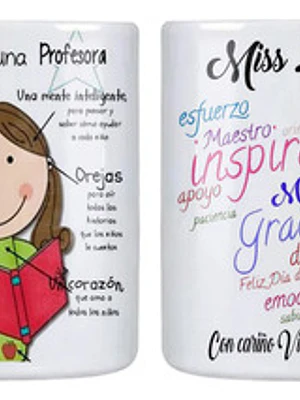 una Profesora
Una mente inteligente,
para pensar y
saber cómo ayudar
a cada niño
Orejas
para oír
todas las
historias
que los niños
le cuentan
Un corazón,
que ama a
todos los niños
Miss
esfuerzo
Maestro
inspir
apoyo
paciencia
M
Gra
d
Feliz Día d
emo
sab
Con cariño Vi